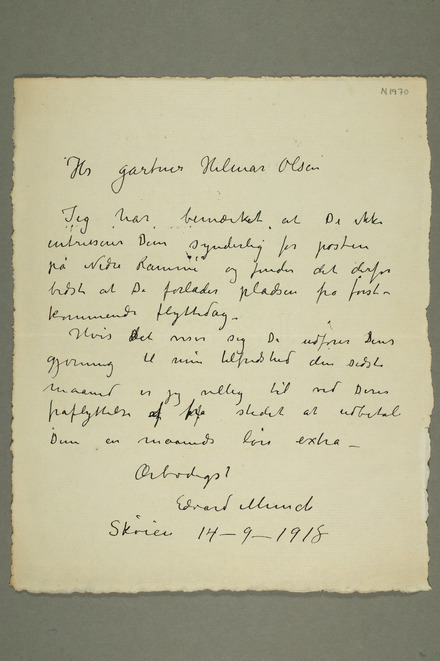 N 1970
Hr gartner Hilmar Olsen
Jeg har bemærket at De ikke
intreserer Dem synderlig for posten
på Nedre Ramme og finder det derfor
bedst at De forlader pladsen fra først-
kommende flyttedag –
Hvis det viser seg De udfører Deres
gjerning til min tilfredshed den sidste
maaned er jeg villig til ved Deres
fraflyttelse af stedet at udbetale
Dem en maaneds løn extra –
Ærbødigst
Edvard Munch
Skøien 14–9–1918